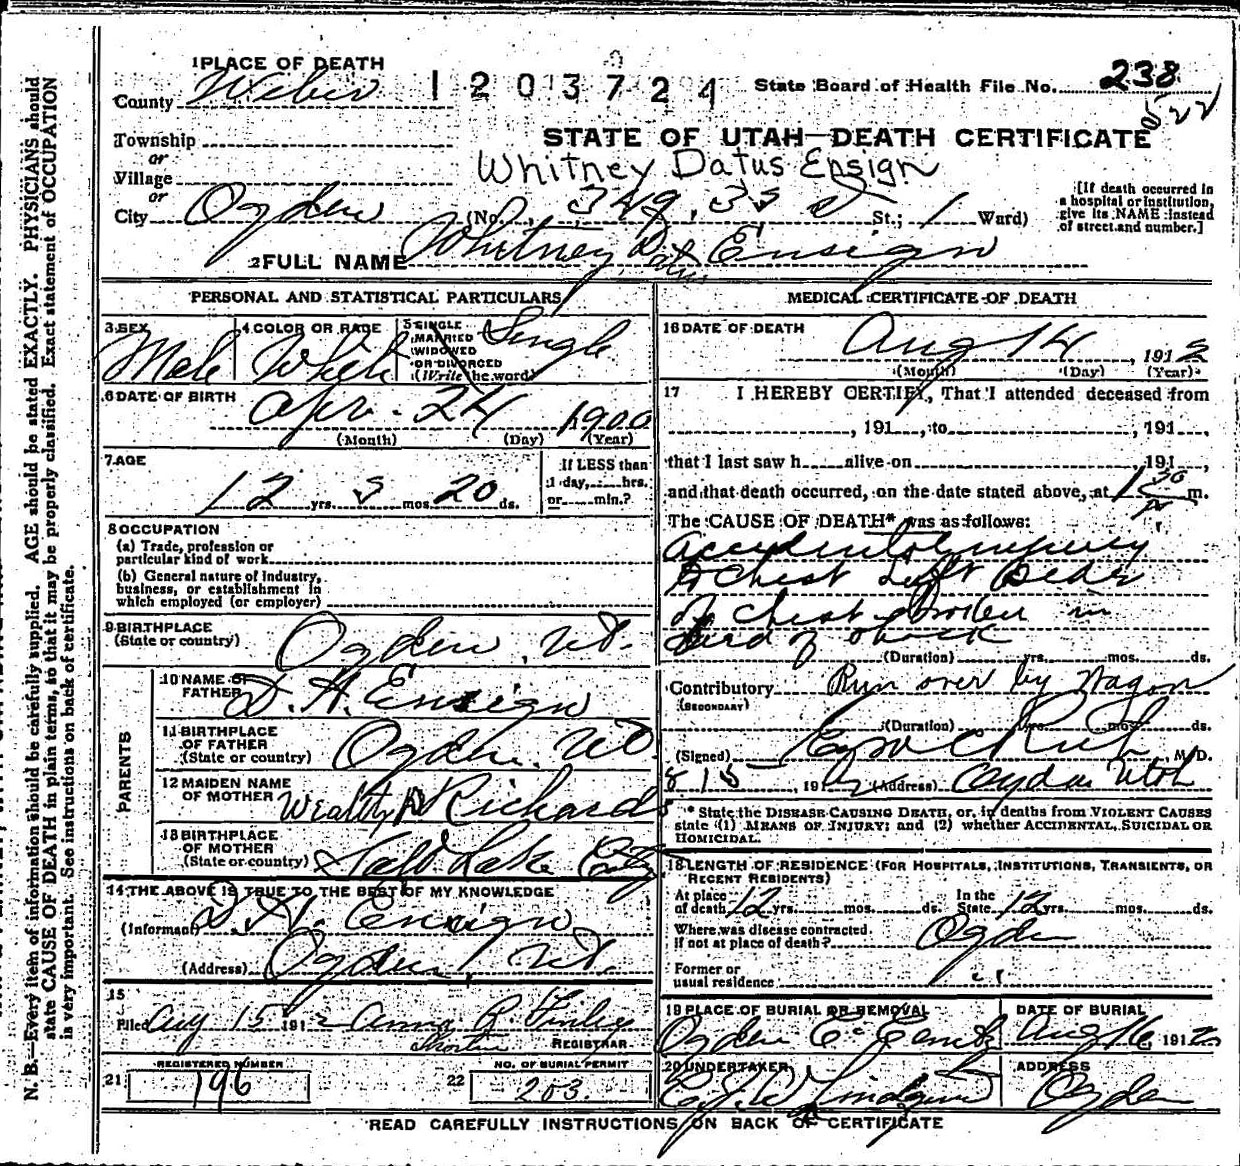 1 PLACE OF DEATH
County Weber 1203724 State Board of Health File No. 238
522
Township
STATE OF UTAH—DEATH CERTIFICATE
or
Village
Whitney Datus Ensign
or
City Ogden (No. 349, 33 St.; 1 Ward)
[If death occurred in a hospital or institution, give its NAME instead of street and number.]
2 FULL NAME Whitney Datus Ensign
PERSONAL AND STATISTICAL PARTICULARS
3 SEX Male
4 COLOR OR RACE White
5 SINGLE MARRIED WIDOWED OR DIVORCED (Write the word) Single
6 DATE OF BIRTH Apr. 24 1900
(Month) (Day) (Year)
7 AGE
12 yrs. 3 mos. 20 ds.
If LESS than 1 day, hrs. or min.?
8 OCCUPATION
(a) Trade, profession or particular kind of work
(b) General nature of industry, business, or establishment in which employed (or employer)
9 BIRTHPLACE (State or country) Ogden, Ut.
PARENTS
10 NAME OF FATHER D. H. Ensign
11 BIRTHPLACE OF FATHER (State or country) Ogden, Ut
12 MAIDEN NAME OF MOTHER Wealthy Richards
13 BIRTHPLACE OF MOTHER (State or country) Salt Lake City
14 THE ABOVE IS TRUE TO THE BEST OF MY KNOWLEDGE
(Informant) D. H. Ensign
(Address) Ogden, Ut.
15
Filed Aug 15 1912 Anna R Finley
REGISTRAR
REGISTERED NUMBER
21 196
NO. OF BURIAL PERMIT
22 203
MEDICAL CERTIFICATE OF DEATH
16 DATE OF DEATH Aug 14, 1912
(Month) (Day) (Year)
17 I HEREBY CERTIFY, That I attended deceased from
, 191 , to , 191 ,
that I last saw h alive on , 191 ,
and that death occurred, on the date stated above, at 1 30 m.
The CAUSE OF DEATH* was as follows:
Accidental injury
to chest Left
of chest broken in
(Duration) yrs. mos. ds.
Contributory Run over by Wagon
(SECONDARY)
(Duration) yrs. mos. ds.
(Signed) M. D.
8 15, 1912 (Address) Ogden Utah
* State the DISEASE CAUSING DEATH, or, in deaths from VIOLENT CAUSES state (1) MEANS OF INJURY; and (2) whether ACCIDENTAL, SUICIDAL OR HOMICIDAL.
18 LENGTH OF RESIDENCE (FOR HOSPITALS, INSTITUTIONS, TRANSIENTS, OR RECENT RESIDENTS)
At place of death 12 yrs. mos. ds. In the State 12 yrs. mos. ds.
Where was disease contracted, if not at place of death? Ogden
Former or usual residence
19 PLACE OF BURIAL OR REMOVAL
Ogden
DATE OF BURIAL
Aug 16 1912
20 UNDERTAKER
Lindquist
ADDRESS
Ogden
READ CAREFULLY INSTRUCTIONS ON BACK OF CERTIFICATE
N. B.—Every item of information should be carefully supplied. AGE should be stated EXACTLY. PHYSICIANS should
state CAUSE OF DEATH in plain terms, so that it may be properly classified. Exact statement of OCCUPATION
is very important. See instructions on back of certificate.